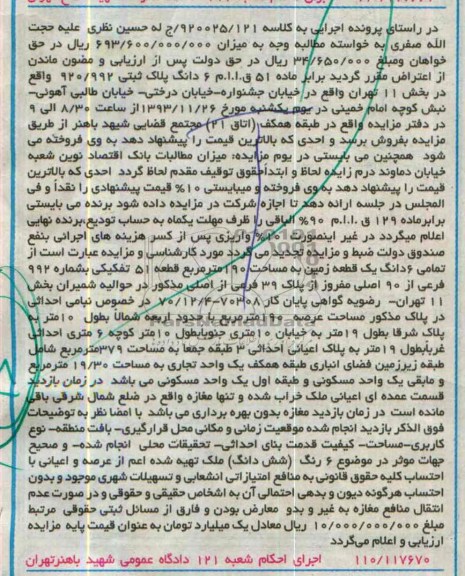 در راستای پرونده اجرایی به کلاسه ۹۲۰۰۲۵/۱۲۱/ج له حسین نظری علیه حجت
الله صفری به خواسته مطالبه وجه به میزان ۶۹۳/۶۰۰/۰۰۰/۰۰۰ ریال در حق
خواهان ومبلغ ۳۴/۶۵۰/۰۰۰ ریال در حق دولت پس از ارزیابی و مصون ماندن
از اعتراض مقرر گردید برابر ماده ۵۱ ق.ا.ا.م ۶ دانگ پلاک ثبتی ۹۲۰/۹۹۲ واقع
در بخش ۱۱ تهران واقع در خیابان جشنواره-خیابان درختی- خیابان طالبی آهونی-
نبش کوچه امام خمینی در یوم یکشنبه مورخ ۱۳۹۳/۱۱/۲۶از ساعت ۸/۳۰ الی ۹
در دفتر مزایده واقع در طبقه همکف (اتاق ۲۱) مجتمع قضایی شهید باهنر از طریق
مزایده بفروش برسد و احدی که بالاترین قیمت را پیشنهاد دهد به وی فروخته می
شود همچنین می بایستی در یوم مزایده: میزان مطالبات بانک اقتصاد نوین شعبه
خیابان دماوند درم زایده لحاظ و ابتدآحقوق توقیف مقدم لحاظ گردد احدی که بالاترین
قیمت را پیشنهاد دهد به وی فروخته و میبایستی ۱۰% قیمت پیشنهادی را نقدآ و فی
المجلس در جلسه ارائه دهد تا اجازه شرکت در مزایده داده شود برنده می بایستی
برابرماده ۱۲۹ ق .ا.ا.م ۹۰% الباقی را ظرف مهلت یکماه به حساب تودیع،برنده نهایی
اعلام میگردد در غیر اینصورت ۱۰% واریزی پس از کسر هزینه های اجرائی بنفع
صندوق دولت ضبط و مزایده تجدید می گردد مورد کارشناسی و مزایده عبارت است از
تمامی ۶دانگ یک قطعه زمین به مساحت ۱۹۰مترمربع قطعه ۵۱ تفکیکی بشماره ۹۹۲
فرعی از ۹۰ اصلی مفروز از پلاک ۳۹ فرعی از اصلی مذکور در حوالیه شمیران بخش
۱۱ تهران- رضویه گواهی پایان کار ۷۰۳۰۸-۷۰/۱۲/۴ در خصوص نیامی احداثی
در پلاک مذکور مساحت عرصه ۱۹۰مترمربع با حدود اربعه شمالآ بطول ۱۰متر به
پلاک شرقآ بطول ۱۹متر به خیابان ۱۰متری جنوبآبطول ۱۰متر کوچه ۶ متری احداثی
غربآبطول ۱۹متر به پلاک اعیانی احداثی ۳ طبقه جمعآ به مساحت ۳۷۹مترمربع شامل
طبقه زیرزمین فضای انباری طبقه همکف یک واحد تجاری به مساحت ۱۹/۳۰ مترمربع
و مابقی یک واحد مسکونی و طبقه اول یک واحد مسکونی می باشد در زمان بازدید
قسمت عمده ای اعیانی ملک خراب شده و تنها مغازه واقع در ضلع شمال شرقی باقی
مانده است در زمان بازدید مغازه بدون بهره برداری می باشد با امضا نظر به توضیحات
فوق الذکر بازدید انجام شده موقعیت زمانی و مکانی محل قرارگیری- بافت منطقه- نوع
کاربری-مساحت- کیفیت قدمت بنای احداثی- تحقیقات محلی انجام شده- و صحیح
جهات موثر در موضوع ۶ رنگ (شش دانگ) ملک تهیه شده اعم از عرصه و اعیانی با
احتساب کلیه حقوق قانونی به منافع امتیازاتی انشعابی و تسهیلات شهری موجود و بدون
احتساب هرگونه دیون و بدهی احتمالی آن به اشخاص حقیقی و حقوقی و در صورت عدم
انتقال منافع مغازه به غیر و بدو معارض بودن و فارق از مسائل ثبتی حقوقی مرتبط
مبلغ ۱۰/۰۰۰/۰۰۰/۰۰۰ ریال معادل یک میلیارد تومان به عنوان قیمت پایه مزایده
ارزیابی و اعلام می‌گردد
۱۱۰/۱۱۷۶۷۰ اجرای احکام شعبه ۱۲۱ دادگاه عمومی شهید باهنرتهران